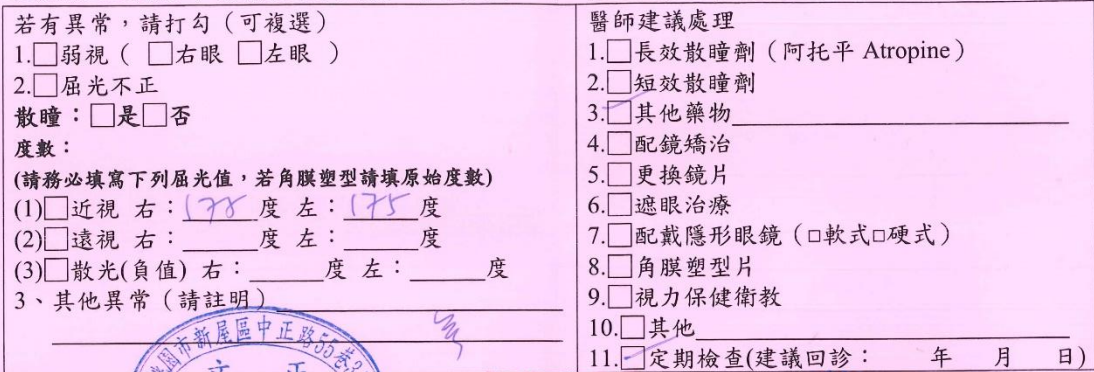 若有異常，請打勾（可複選）
1.□弱視（ □右眼 □左眼 ）
2.□屈光不正
散瞳：□是□否
度數：
(請務必填寫下列屈光值，若角膜塑型請填原始度數)
(1)□近視 右：178度 左：175度
(2)□遠視 右：______度 左：______度
(3)□散光(負值) 右：______度 左：______度
3、其他異常（請註明）
園市新屋區中正路55巷
醫師建議處理
1.□長效散瞳劑（阿托平 Atropine）
2.□短效散瞳劑
3.□其他藥物
4.□配鏡矯治
5.□更換鏡片
6.□遮眼治療
7.□配戴隱形眼鏡（□軟式□硬式）
8.□角膜塑型片
9.□視力保健衛教
10.□其他
11.□定期檢查(建議回診： 年 月 日)